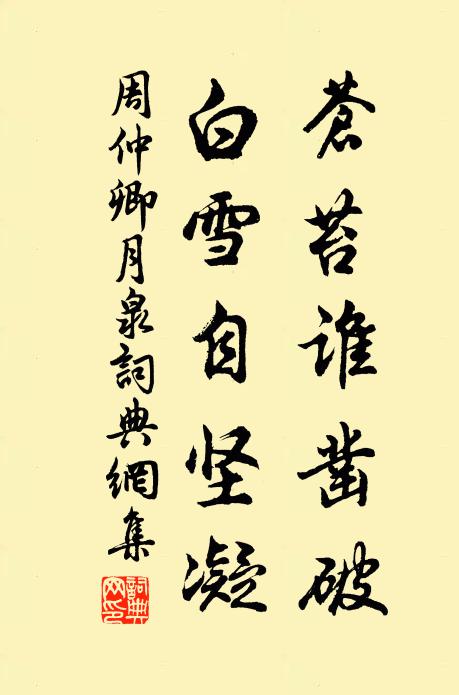 蒼苔誰凿破
白雪自坚凝
周仲卿月泉詞典網集
詞典網印